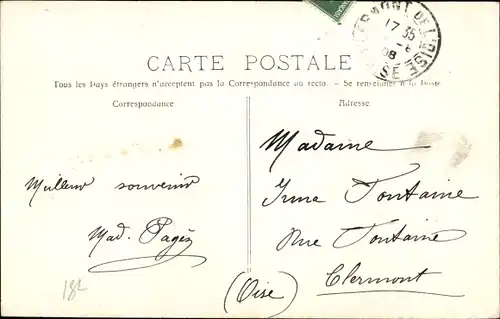 CLERMONT DE L'OISE
17 35
08
CARTE POSTALE
Tous les Pays étrangers n'acceptent pas la Correspondance au recto. — Se renseigner à la Poste
Correspondance
Adresse
Meilleur souvenir
Mad. Pagès
Madame
Irma Fontaine
Rue Fontaine
Clermont
(Oise)